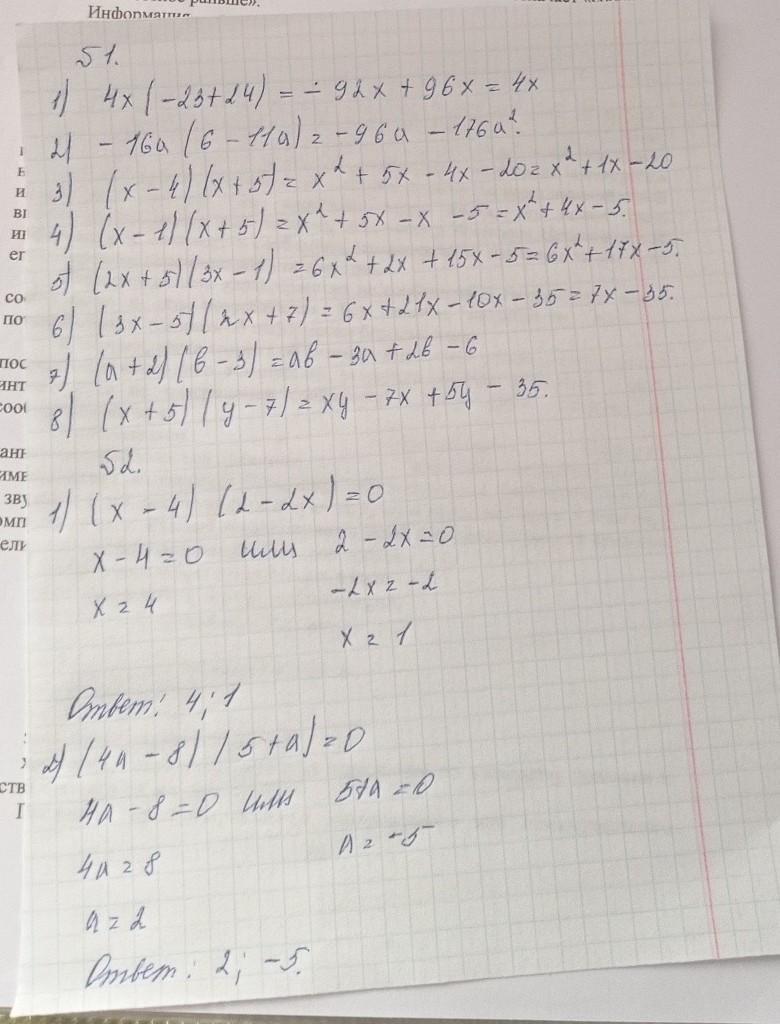 Информация
51.
1) 4x (-23+24) = - 92x + 96x = 4x
2) - 16a (6 - 11a) = -96a - 176a².
3) (x - 4)(x+5) = x² + 5x - 4x - 20 = x² + 1x - 20
4) (x - 1)(x + 5) = x² + 5x - x - 5 = x² + 4x - 5.
5) (2x + 5)(3x - 1) = 6x² + 2x + 15x - 5 = 6x² + 17x - 5.
6) (3x - 5)(2x + 7) = 6x + 21x - 10x - 35 = 7x - 35.
7) (a + 2)(b - 3) = ab - 3a + 2b - 6
8) (x + 5)(y - 7) = xy - 7x + 5y - 35.
52.
1) (x - 4) (2 - 2x) = 0
x - 4 = 0 или 2 - 2x = 0
x = 4 -2x = -2
x = 1
Ответ: 4; 1
2) (4a - 8)(5+a) = 0
4a - 8 = 0 или 5+a = 0
4a = 8 a = -5
a = 2
Ответ: 2; -5.